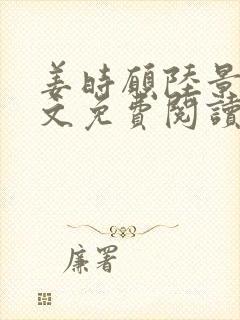 姜時願陸景
文免費閱讀
廉署